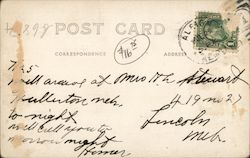 POST CARD
CORRESPONDENCE
ADDRESS
7-25
Will arrive at
Fullerton Neb.
to-night
will call you to
morrow night
Homer
Mrs H. L. Stewart
419 no 21
Lincoln
Neb.